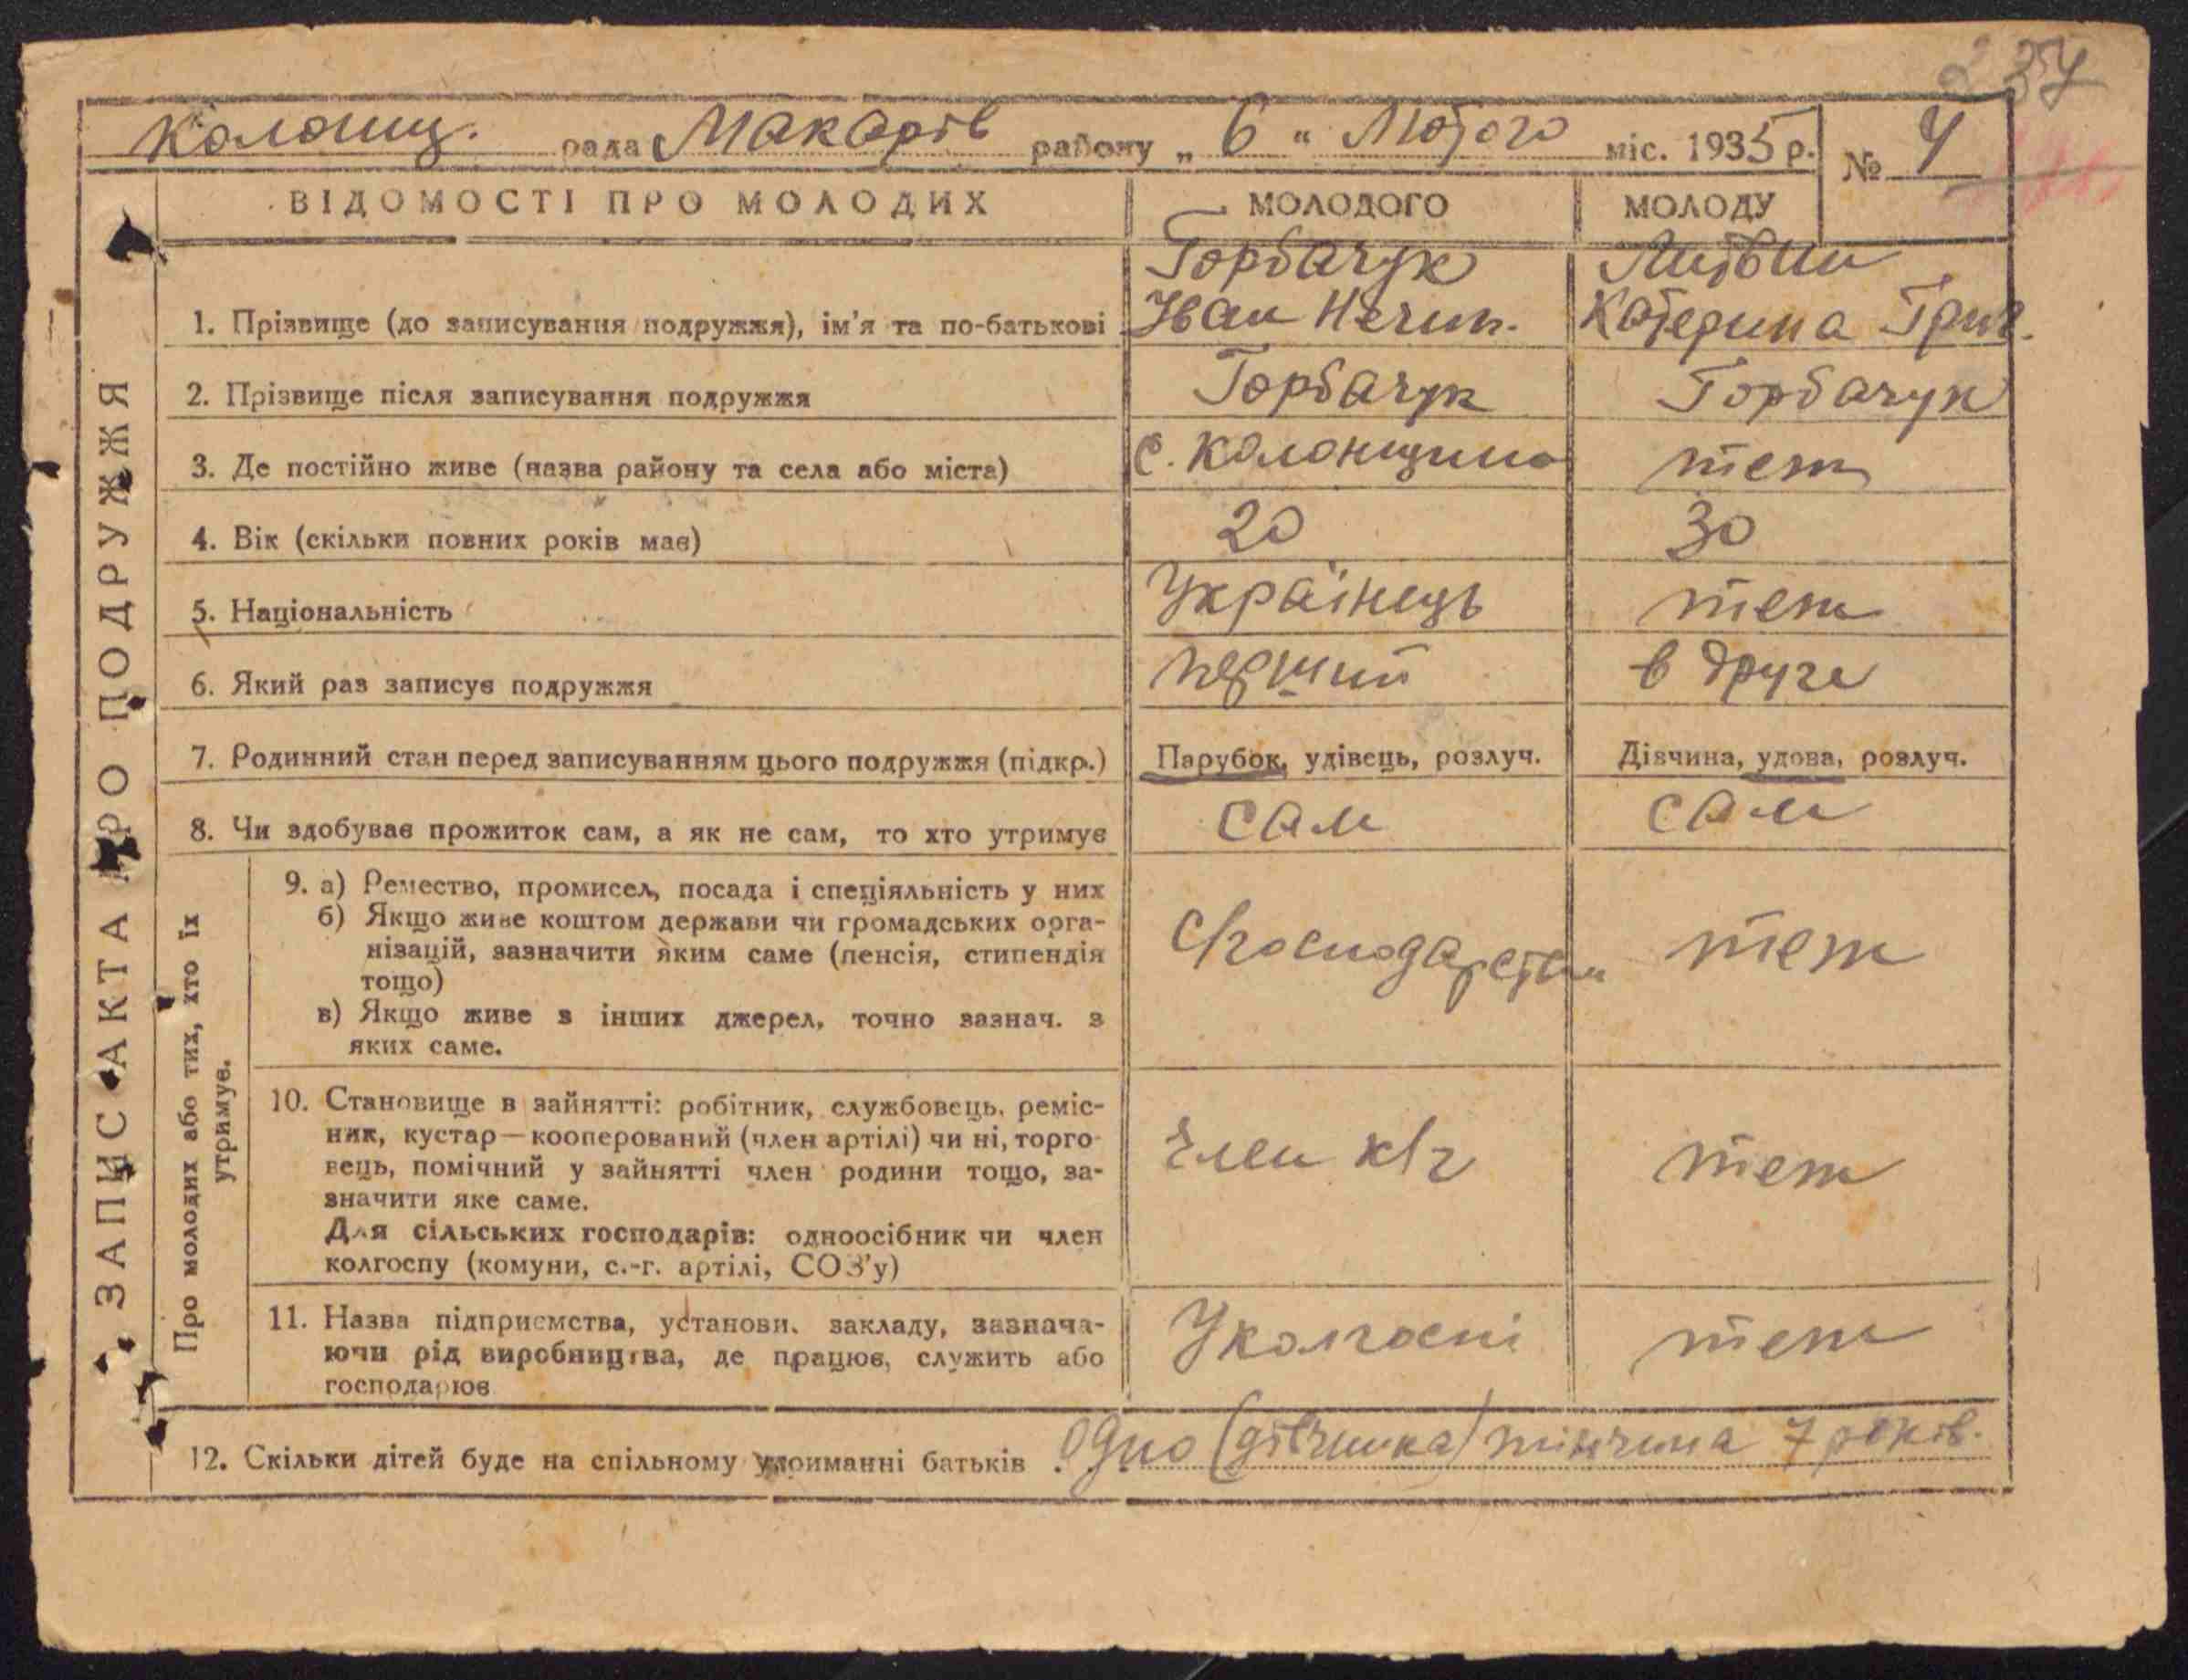 Колонщ. рада Макарів району „ 6 " Лютого міс. 1935 р. № 4
ВІДОМОСТІ ПРО МОЛОДИХ МОЛОДОГО МОЛОДУ
Горбачук Литвин
1. Прізвище (до записування подружжя), ім'я та по-батькові Іван Нечип. Катерина Григ.
2. Прізвище після записування подружжя Горбачук Горбачук
3. Де постійно живе (назва району та села або міста) с. Колонщина теж
4. Вік (скільки повних років має) 20 30
5. Національність Українець теж
6. Який раз записує подружжя перший в друге
7. Родинний стан перед записуванням цього подружжя (підкр.) Парубок, удівець, розлуч. Дівчина, удова, розлуч.
8. Чи здобуває прожиток сам, а як не сам, то хто утримує сам сам
9. а) Ремество, промисел, посада і спеціяльність у них
б) Якщо живе коштом держави чи громадських орга-
нізацій, зазначити яким саме (пенсія, стипендія
тощо)
с/господарством теж
в) Якщо живе з інших джерел, точно зазнач. з
яких саме.
10. Становище в зайнятті: робітник, службовець, реміс-
ник, кустар—кооперований (член артілі) чи ні, торго-
вець, помічний у зайнятті член родини тощо, за-
значити яке саме.
Для сільських господарів: одноосібник чи член
колгоспу (комуни, с.-г. артілі, СОЗ'у)
член к/г теж
11. Назва підприємства, установи, закладу, зазнача-
ючи рід виробництва, де працює, служить або
господарює
У колгоспі теж
12. Скільки дітей буде на спільному утриманні батьків Одно (дівчинка) 7 років.
ЗАПИС АКТА ПРО ПОДРУЖЖЯ
Про молодих або тих, хто їх
утримує.